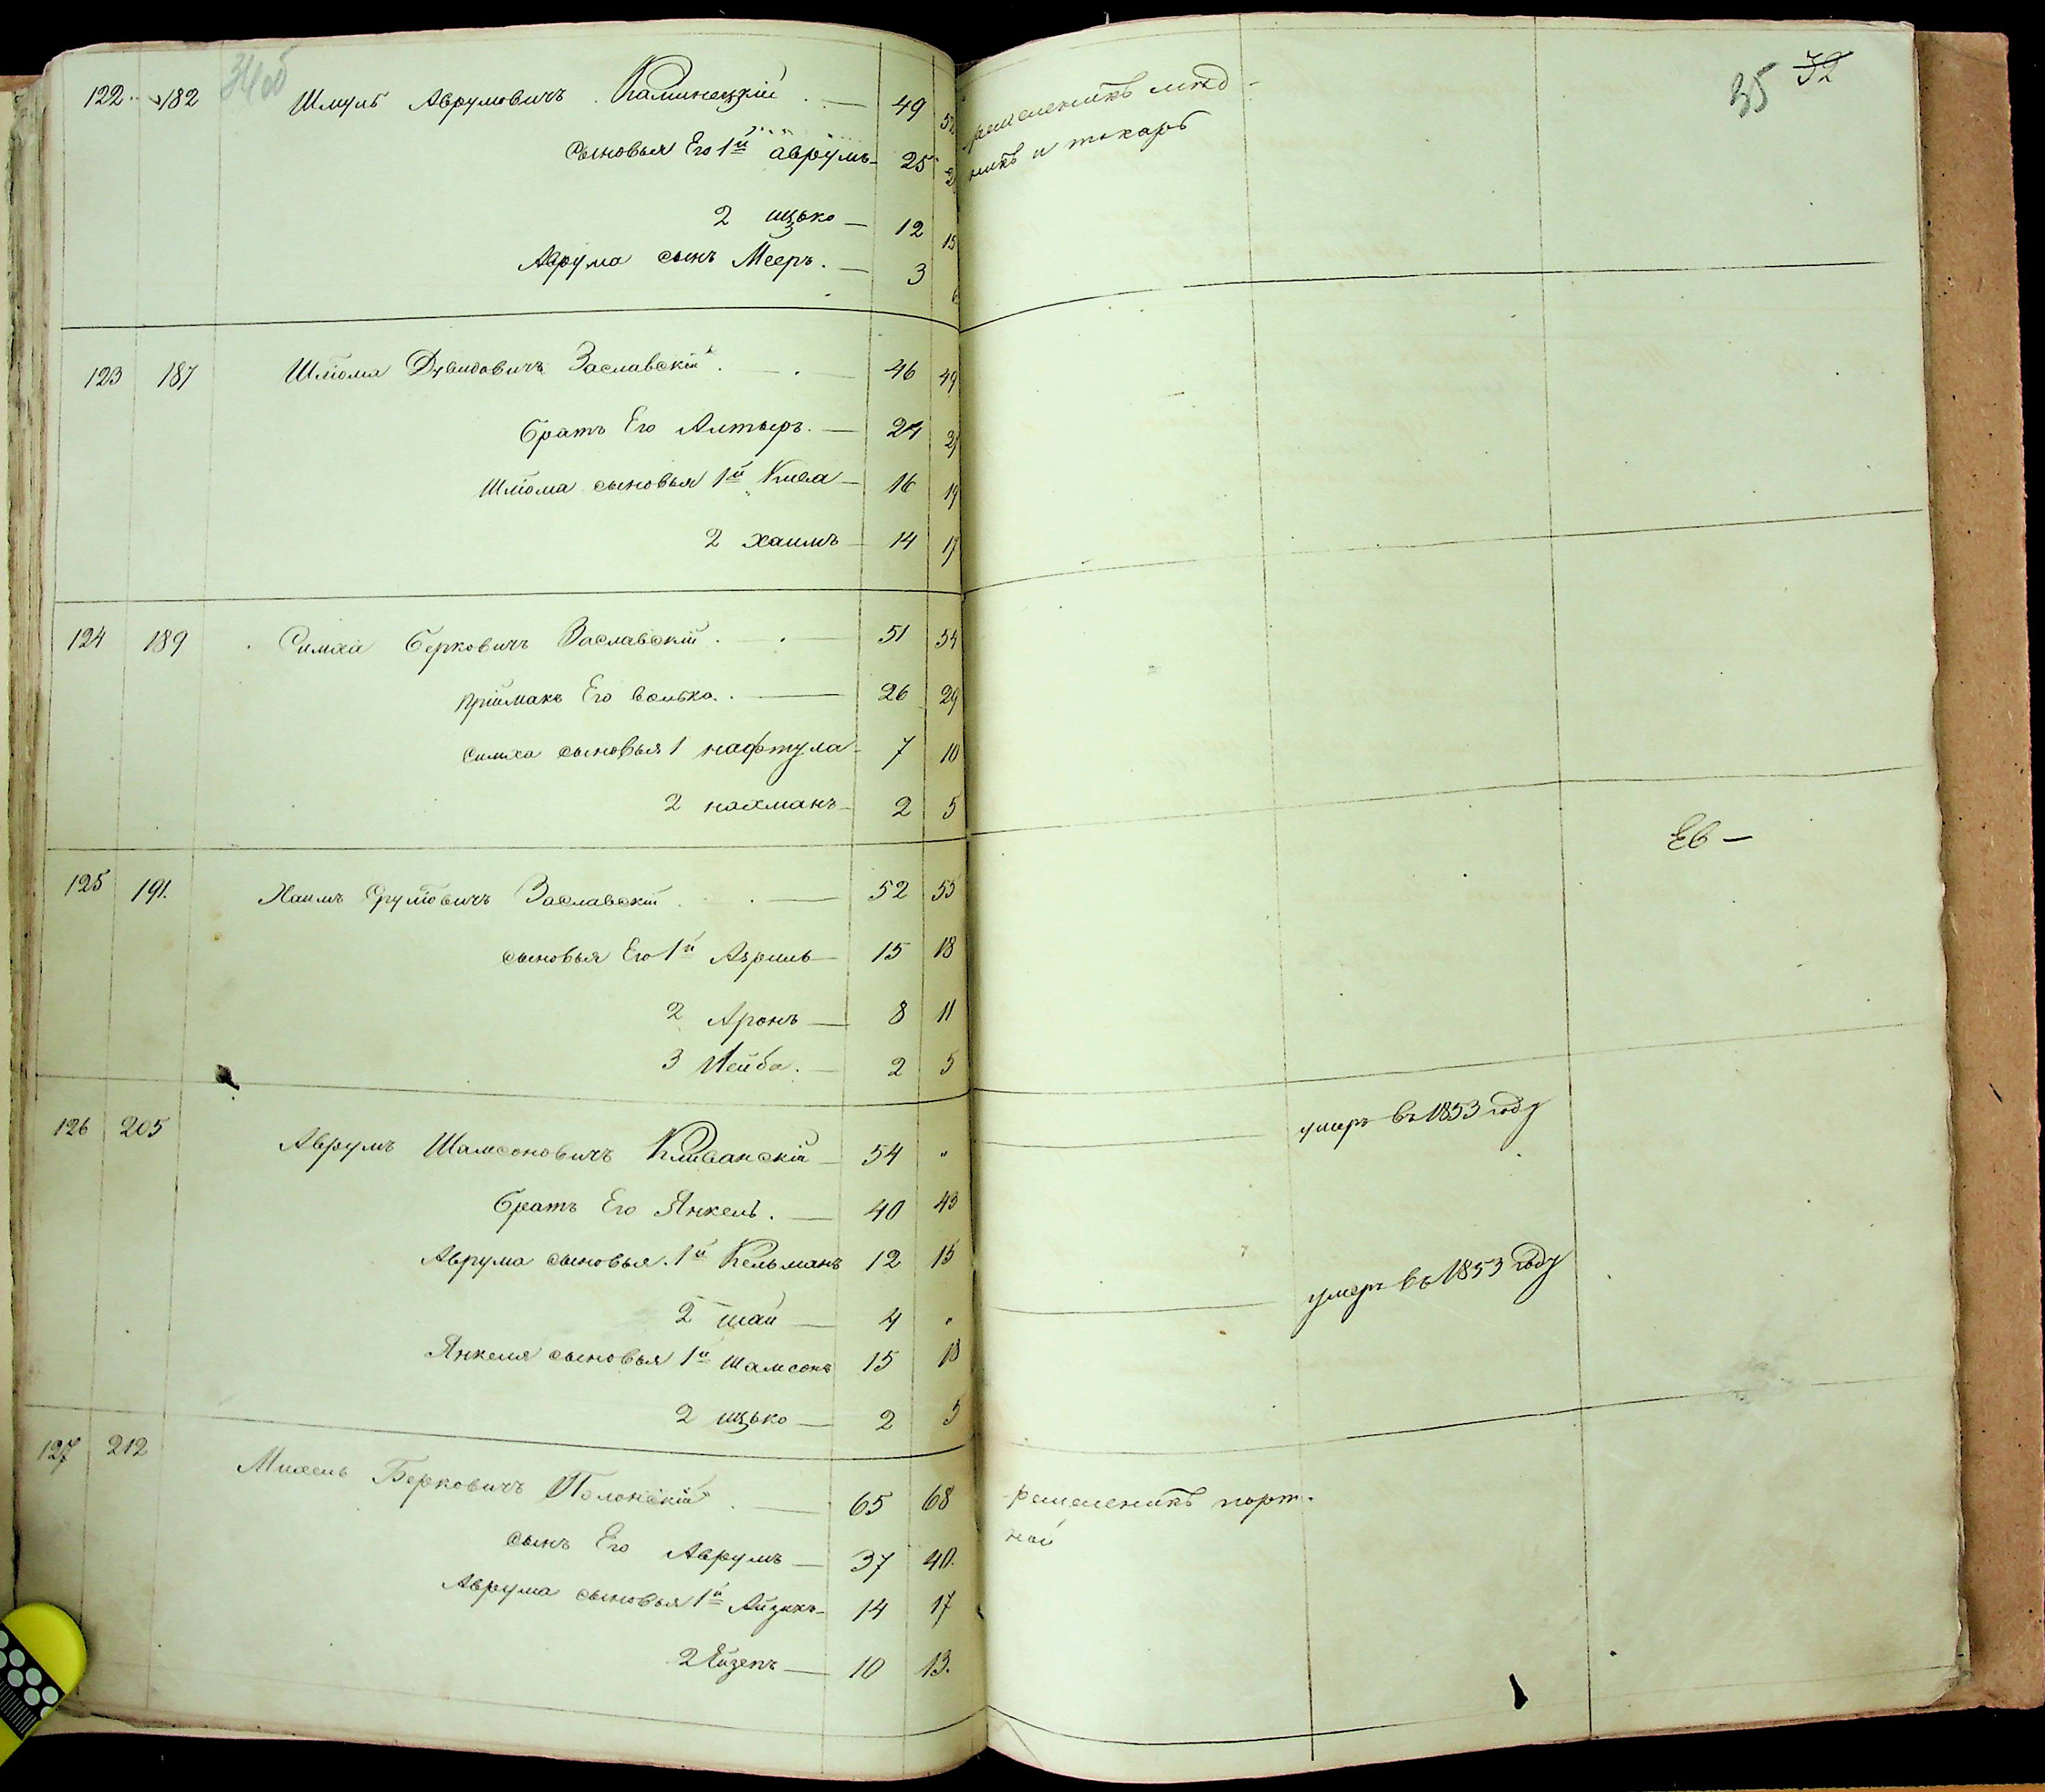 34об
122. 182 Шмуль Аврумовичъ Каминецкій. — 49 52
Сыновья Его 1й аврумъ — 25
2 ицько — 12 15
Аврума сынъ Мееръ. — 3 6
123 187 Шліома Двидовичъ Заславскій. — 46 49
братъ Его Алтыръ. — 24 27
Шліома сыновья 1й Кива — 16 19
2 хаимъ — 14 17
124 189 Симха берковичъ Заславскій. — 51 54
пріймакъ Его волько. — 26 29
симха сыновья 1 нафтула — 7 10
2 нахманъ — 2 5
125 191. Хаимъ Сруліовичъ Заславскій. — 52 55
сыновья Его 1й Азриль — 15 18
2 Аронъ — 8 11
3 Лейба. — 2 5
126 205 Аврумъ Шамсоновичъ Клеванскій — 54 "
братъ Его Янкель. — 40 43
Аврума сыновья. 1й Кельманъ 12 15
2 шаи — 4 "
Янкеля сыновья 1й шамсонъ 15 18
2 ицько — 2 5
127 212 Михель Берковичъ Полонскій. — 65 68
сынъ Его Аврумъ — 37 40.
Аврума сыновья 1й Айзикъ — 14 17
2 — 10 13.
35 32
ремесленикъ мѣд-
никъ и токарь
Ев —
умеръ въ 1853 году
умеръ въ 1853 году
ремесленикъ порт-
ной